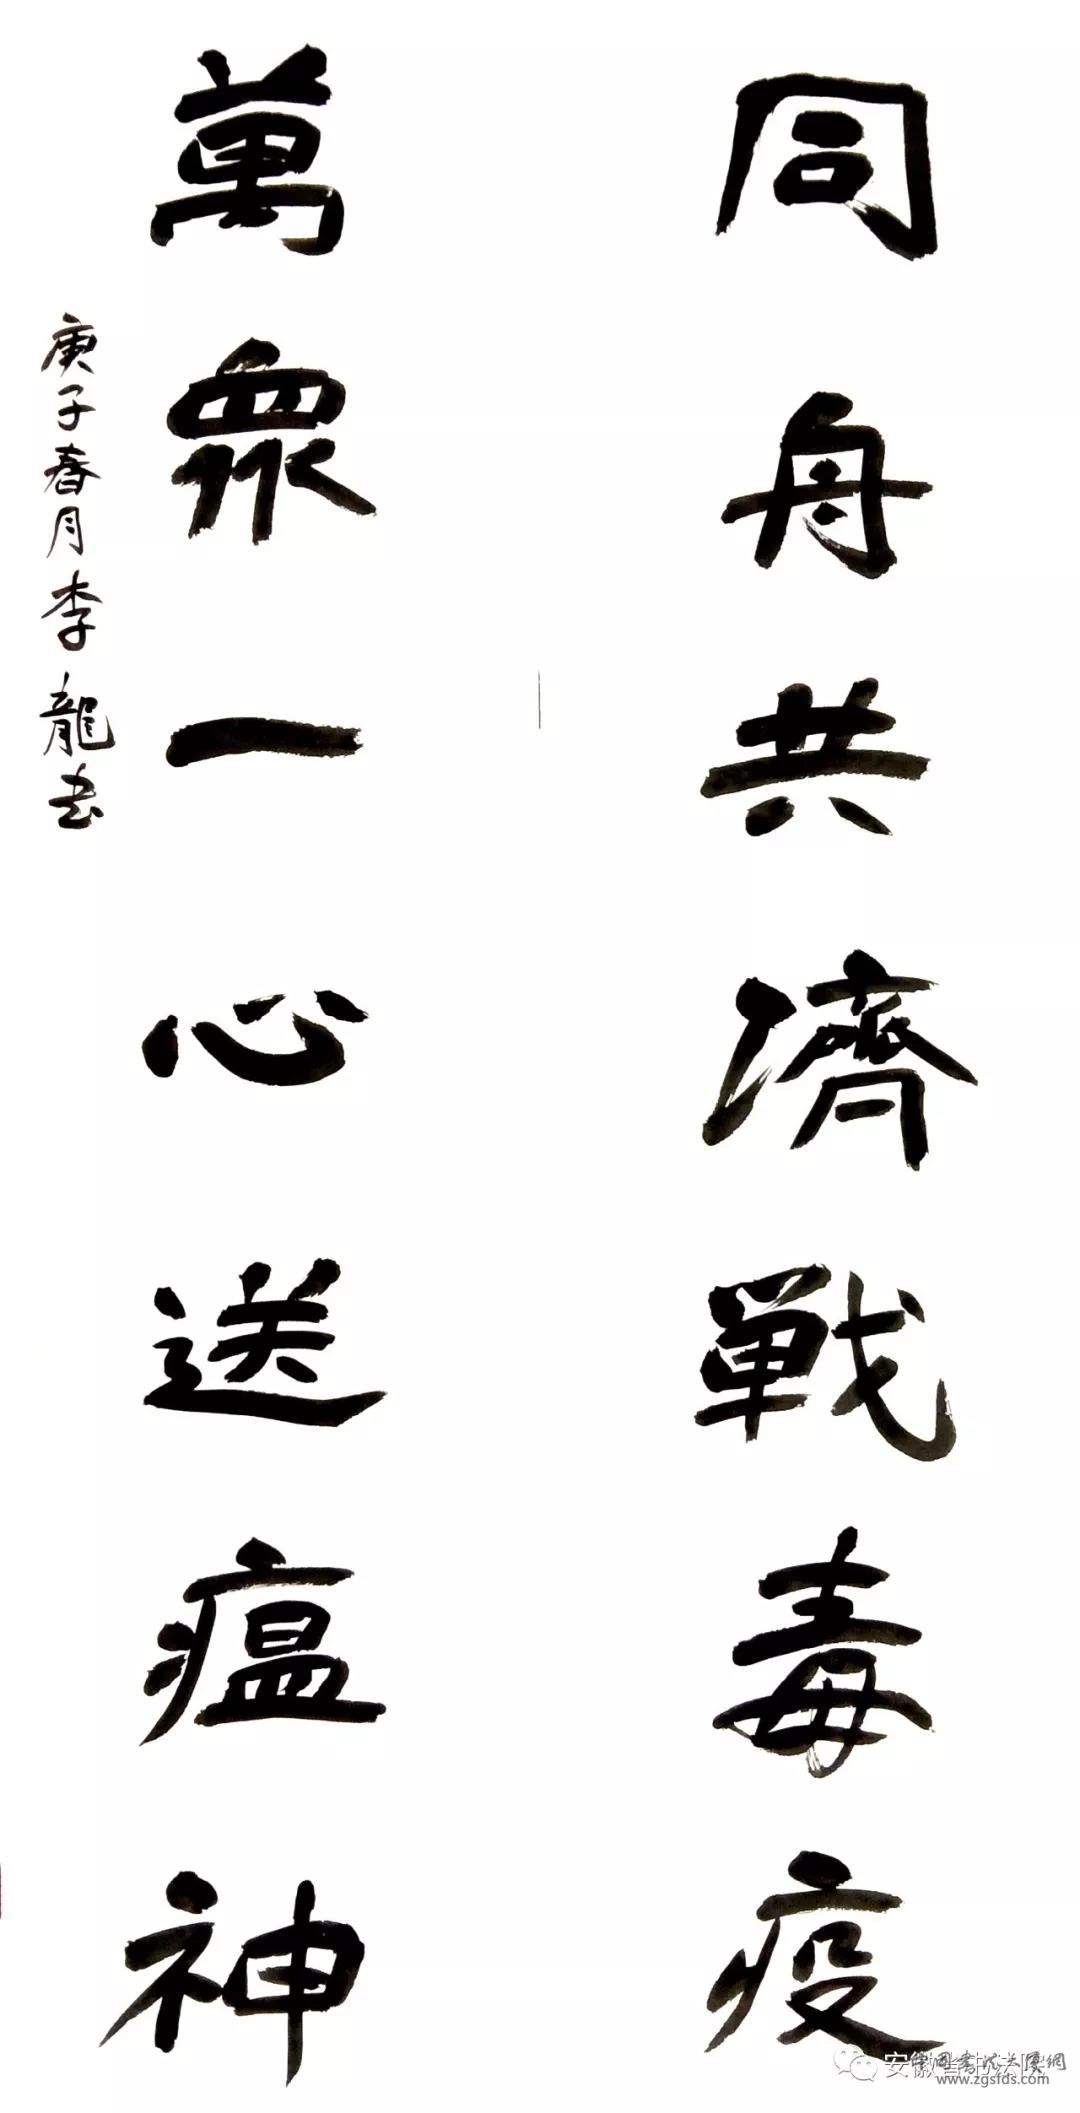 同舟共濟戰毒疫
萬眾一心送瘟神
庚子春月李龍书
安徽省书法院
www.zgsfds.com